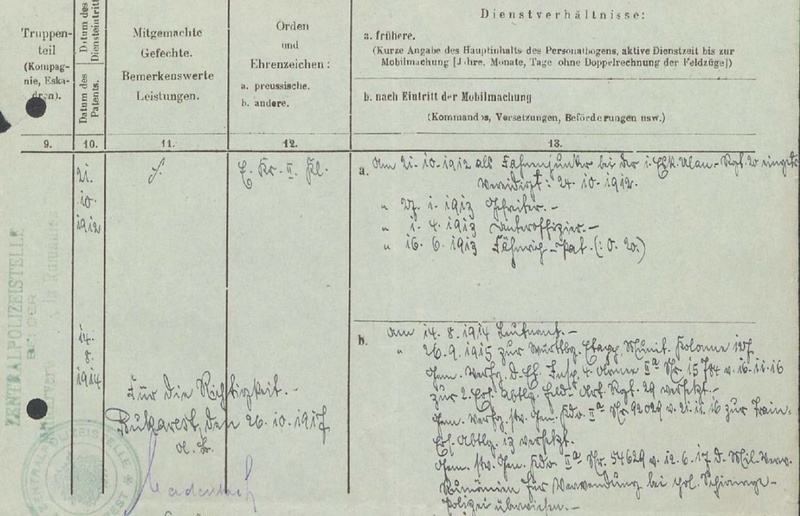 Truppen-
teil
(Kompag-
nie, Eska-
dron).
Datum des
Diensteintritts
Datum des
Patents.
Mitgemachte
Gefechte.
Bemerkenswerte
Leistungen.
Orden
und
Ehrenzeichen:
a. preussische.
b. andere.
Dienstverhältnisse:
a. frühere.
(Kurze Angabe des Hauptinhalts des Personalbogens, aktive Dienstzeit bis zur
Mobilmachung [Jahre, Monate, Tage ohne Doppelrechnung der Feldzüge])
b. nach Eintritt der Mobilmachung
(Kommandos, Versetzungen, Beförderungen usw.)
9. 10. 11. 12. 13.
21.
10.
1912
E. Kr. II. Kl.
a. Am 21.10.1912 als Fahnenjunker bei der 1. Esk. Ulan.-Rgt. 20
Vereidigt: 24.10.1912.
" 27.1.1913 Gefreiter.-
" 1.4.1913 Unteroffizier.-
" 16.6.1913 Fähnrich-Pat.
14.
8.
1914
b. Am 14.8.1914 Leutnant.-
" 26.9.1915 zur Württbg. Etapp. Munit. Kolonne
Gem. Verfg. IIa Nr. v. 16.11.16
zur 2. Ers. Abtlg. Feld-Art. Rgt. 29 versetzt.-
Gem. Verfg. stv. Gen. Kdo IIa Nr. 92029 v. 21.11.16 zur Train-
Ers. Abtlg. 13 versetzt.
Gem. stv. Gen. Kdo IIa Nr. 54629 v. 12.6.17 d. Mil. Verw.
Rumänien für Verwendung bei
Polizei überwiesen.-
Für die Richtigkeit.-
Bukarest, den 26.10.1917
ZENTRALPOLIZEISTELLE